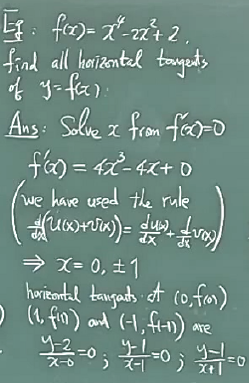 Eg: f(x) = x⁴-2x²+2,
find all horizontal tangents
of y=f(x).
Ans: Solve x from f'(x)=0
f'(x) = 4x³-4x+0
(we have used the rule
d/dx(u(x)+v(x)) = du(x)/dx + d/dx v(x))
⇒ x = 0, ±1
horizontal tangents at (0,f(0))
(1, f(1)) and (-1, f(-1)) are
y-2/x-0 = 0 ; y-1/x-1 = 0 ; y-1/x+1 = 0